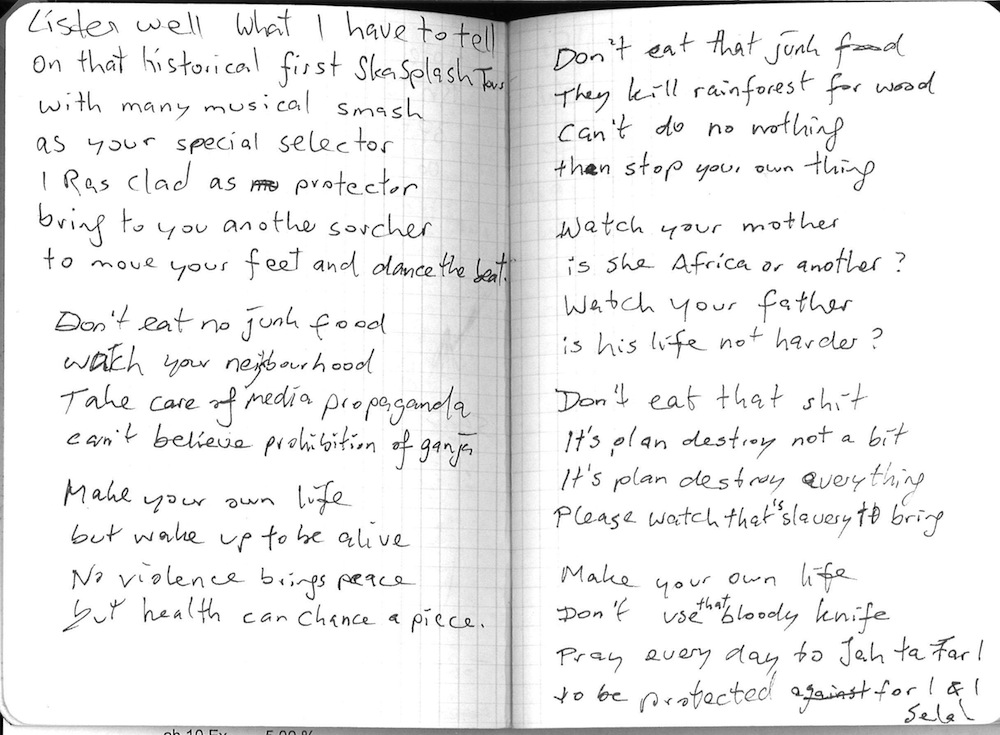 Listen well what I have to tell
on that historical first SkaSplash Tour
with many musical smash
as your special selector
I Ras Clad as protector
bring to you anothe sorcher
to move your feet and dance the beat.
Don't eat no junk food
watch your neighbourhood
Take care of media propaganda
can't believe prohibition of ganja
Make your own life
but wake up to be alive
No violence brings peace
but health can chance a piece.
Don't eat that junk food
They kill rainforest for wood
Can't do no nothing
then stop your own thing
Watch your mother
is she Africa or another?
Watch your father
is his life not harder?
Don't eat that shit
It's plan destroy not a bit
It's plan destroy everything
Please watch that's slavery to bring
Make your own life
Don't use that bloody knife
Pray every day to Jah ta Far I
to be protected against for I & I
Selah